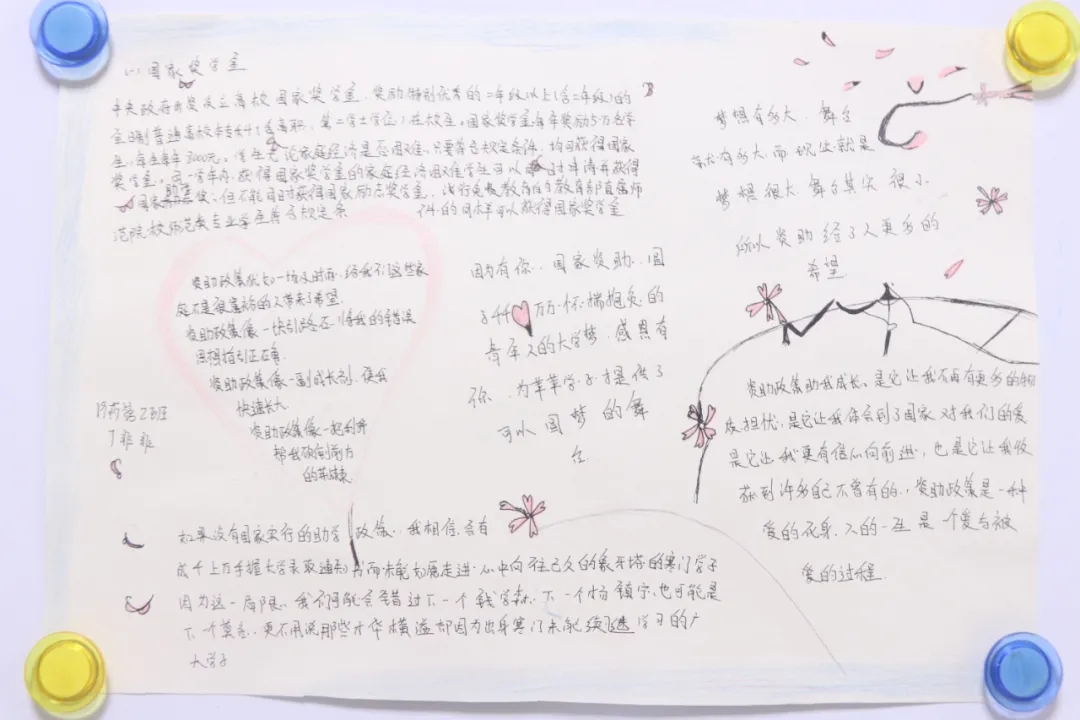 (一)国家奖学金
中央政府出资设立高校国家奖学金,奖励特别优秀的二年级以上(含二年级)的
全日制普通高校本专科(含高职、第二学士学位)在校生,国家奖学金每年奖励5万名学
生,每生每年8000元,学生无论家庭经济是否困难,只要符合规定条件,均可获得国家
奖学金。同一学年内,获得国家奖学金的家庭经济困难学生可以同时申请并获得
国家助学金,但不能同时获得国家励志奖学金。试行免费教育的教育部直属师
范院校师范类专业学生符合规定条件的同样可以获得国家奖学金
资助政策犹如一场及时雨,给我们这些家
庭不是很富裕的人带来了希望
资助政策像一块引路石,将我的错误
思想指引正确
资助政策像一副成长剂,使我
快速长大
资助政策像一把利斧
帮我砍削前方
的荆棘
药营2班
丁非非
因为有你,国家资助,圆
了千万万怀揣抱负的
青年人的大学梦,感恩有
你,为莘莘学子提供了
可以圆梦的舞
台
梦想有多大,舞台
就有多大,而现实就是
梦想很大舞台其实很小
所以资助给了人更多的
希望
资助政策助我成长,是它让我不再有更多的
担忧,是它让我体会到了国家对我们的爱
是它让我更有信心向前进,也是它让我收
获到许多自己不曾有的,资助政策是一种
爱的化身,人的一生是一个爱与被
爱的过程
如果没有国家实行的助学政策,我相信,会有
成千上万手握大学录取通知书而未能如愿走进心中向往已久的象牙塔的寒门学子
因为这一局限,我们可能会错过下一个钱学森,下一个杨镇宁,也可能是
下一个莫言,更不用说那些才华横溢却因为出身寒门未能续继学习的广
大学子